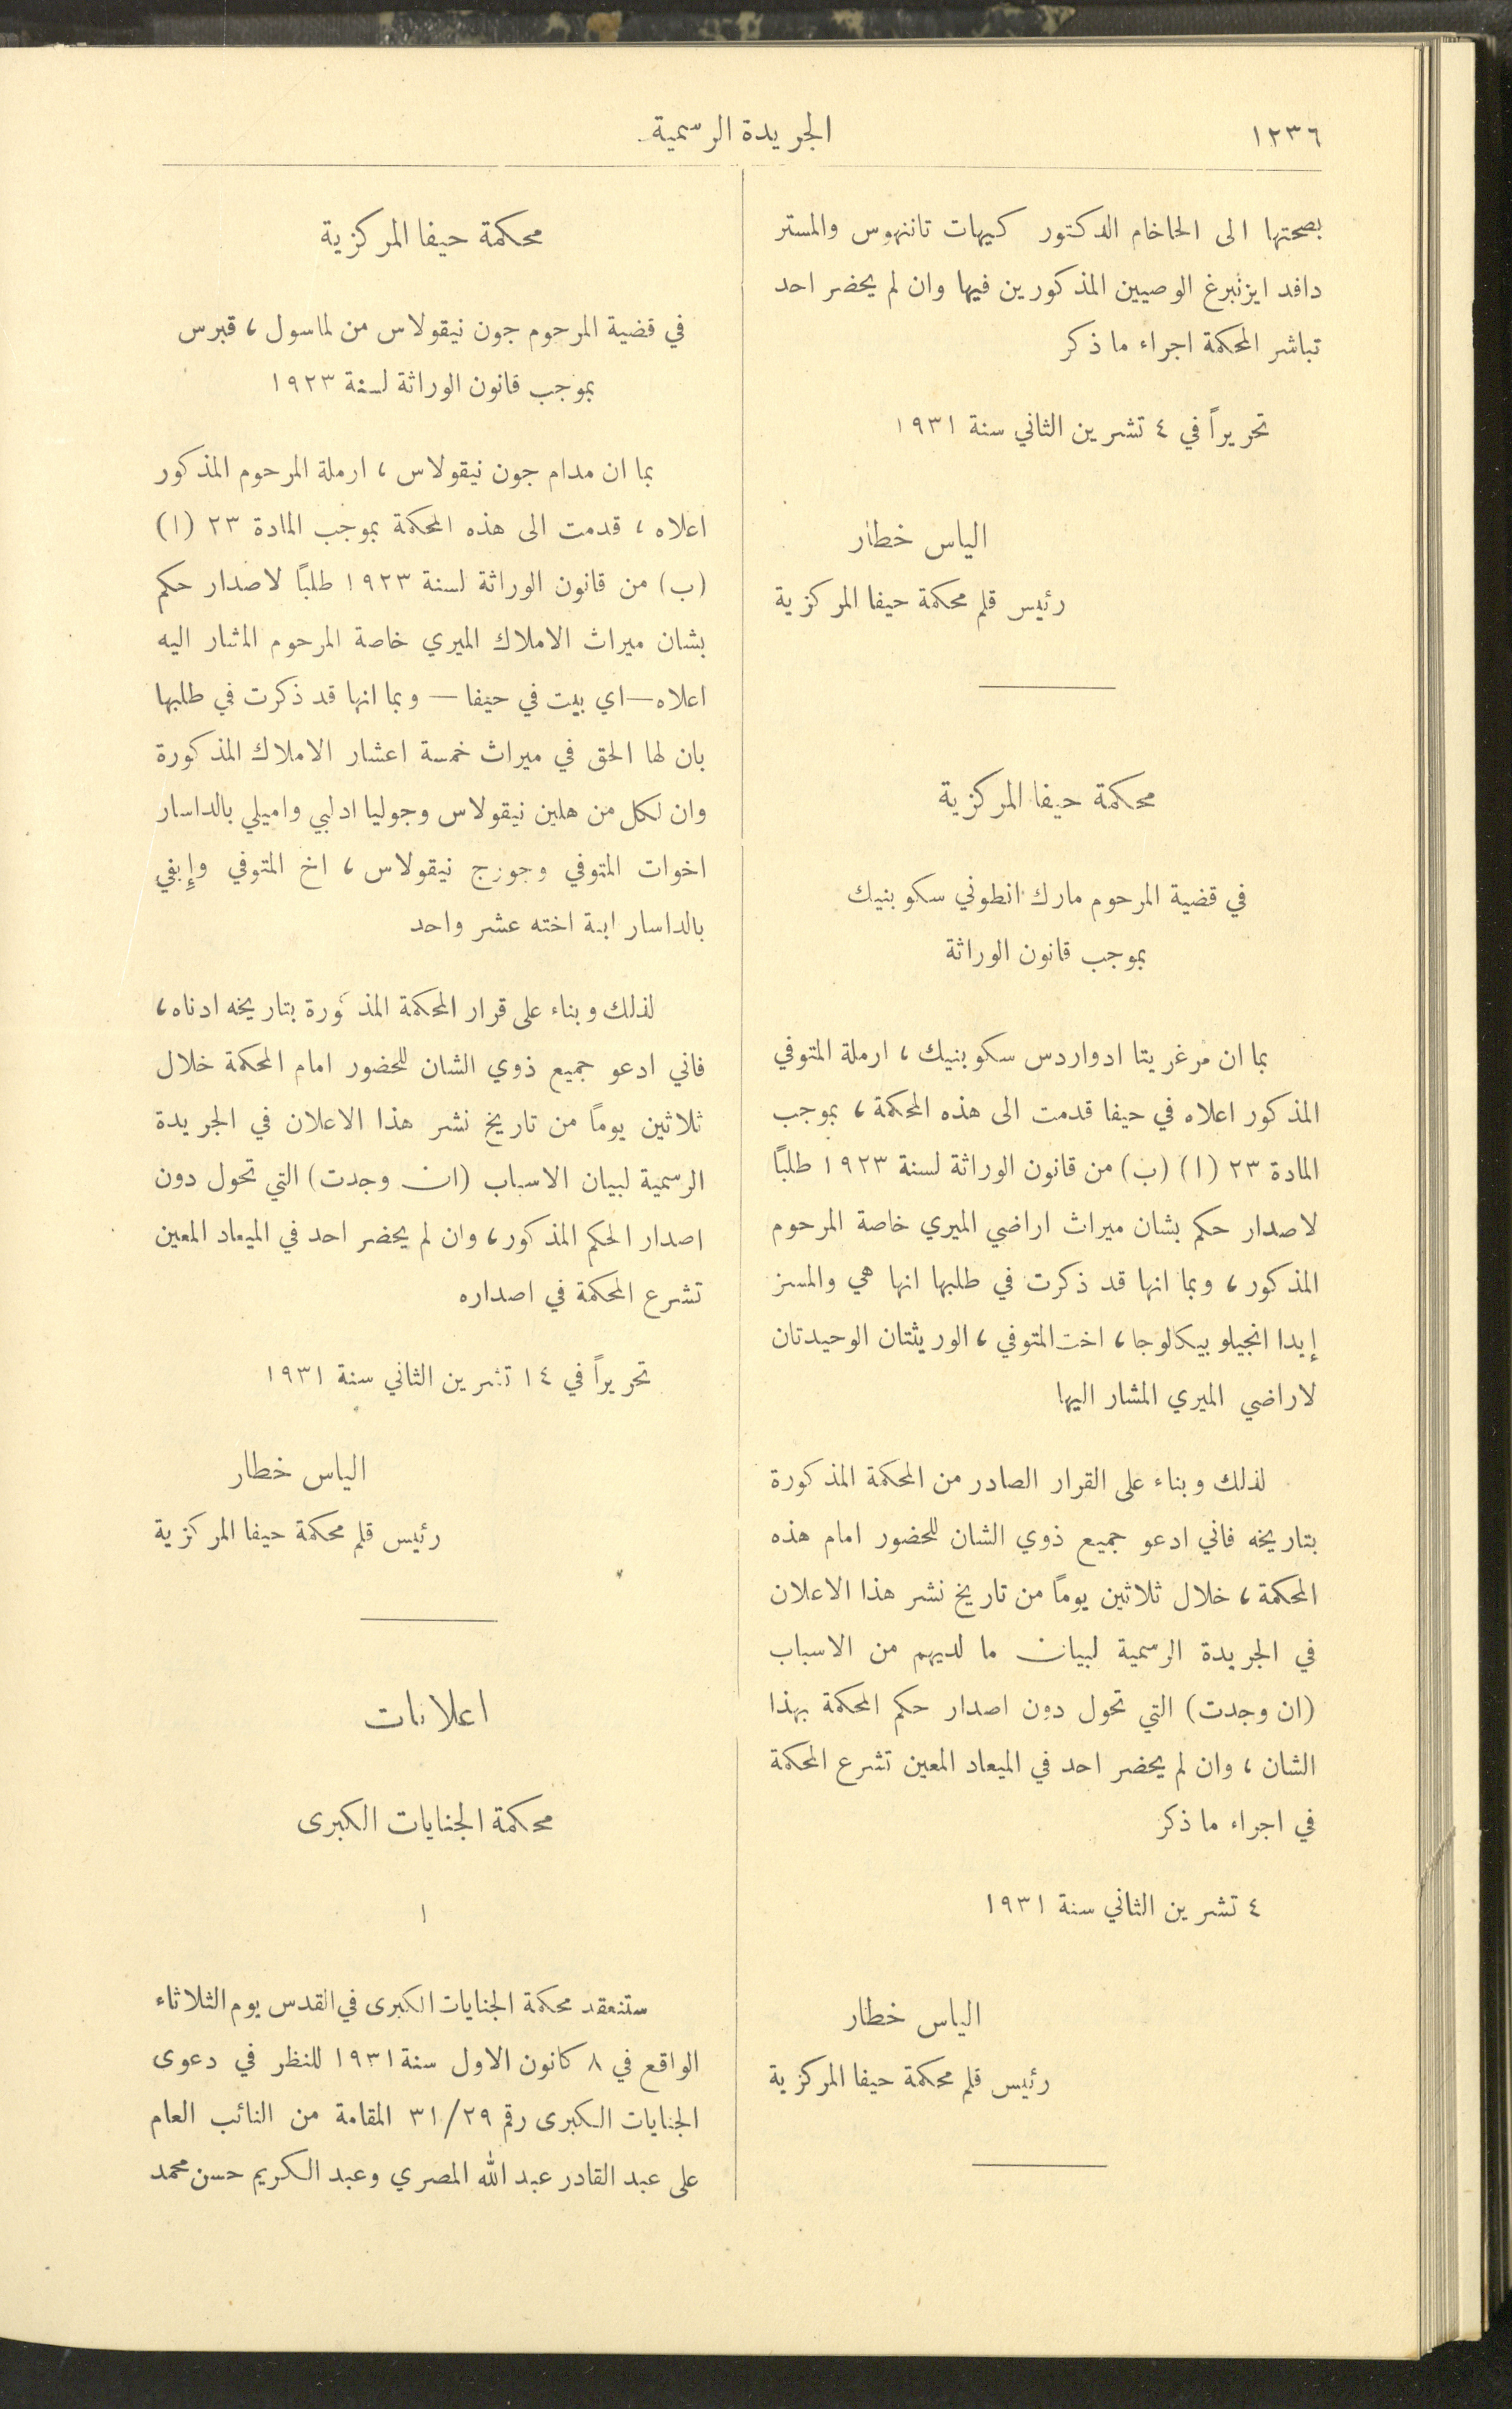 ١٢٣٦
الجريدة الرسمية
بصحتها الى الحاخام الدكتور كيهات تاننهوس والمستر
دافد ايزنبرغ الوصيين المذكورين فيها وان لم يحضر احد
تباشر المحكمة اجراء ما ذكر
تحريراً في ٤ تشرين الثاني سنة ١٩٣١
الياس خطار
رئيس قلم محكمة حيفا المركزية
محكمة حيفا المركزية
في قضية المرحوم مارك انطوني سكوبنيك
بموجب قانون الوراثة
بما ان مرغريتا ادواردس سكوبنيك ، ارملة المتوفي
المذكور اعلاه في حيفا قدمت الى هذه المحكمة ، بموجب
المادة ٢٣ (ا) (ب) من قانون الوراثة لسنة ١٩٢٣ طلباً
لاصدار حكم بشان ميراث اراضي الميري خاصة المرحوم
المذكور ، وبما انها قد ذكرت في طلبها انها هي والمسز
إيدا انجيلو بيكالوجا ، اخت المتوفي ، الوريثتان الوحيدتان
لاراضي الميري المشار اليها
لذلك وبناء على القرار الصادر من المحكمة المذكورة
بتاريخه فاني ادعو جميع ذوي الشان للحضور امام هذه
المحكمة ، خلال ثلاثين يوماً من تاريخ نشر هذا الاعلان
في الجريدة الرسمية لبيان ما لديهم من الاسباب
(ان وجدت) التي تحول دون اصدار حكم المحكمة بهذا
الشان ، وان لم يحضر احد في الميعاد المعين تشرع المحكمة
في اجراء ما ذكر
٤ تشرين الثاني سنة ١٩٣١
الياس خطار
رئيس قلم محكمة حيفا المركزية
محكمة حيفا المركزية
في قضية المرحوم جون نيقولاس من لماسول ، قبرس
بموجب قانون الوراثة لسنة ١٩٢٣
بما ان مدام جون نيقولاس ، ارملة المرحوم المذكور
اعلاه ، قدمت الى هذه المحكمة بموجب المادة ٢٣ (ا)
(ب) من قانون الوراثة لسنة ١٩٢٣ طلباً لاصدار حكم
بشان ميراث الاملاك الميري خاصة المرحوم المشار اليه
اعلاه — اي بيت في حيفا — وبما انها قد ذكرت في طلبها
بان لها الحق في ميراث خمسة اعشار الاملاك المذكورة
وان لكل من هلين نيقولاس وجوليا ادلبي واميلي بالداسار
اخوات المتوفي وجورج نيقولاس ، اخ المتوفي وإيفي
بالداسار ابنة اخته عشر واحد
لذلك وبناء على قرار المحكمة المذكورة بتاريخه ادناه ،
فاني ادعو جميع ذوي الشان للحضور امام المحكمة خلال
ثلاثين يوماً من تاريخ نشر هذا الاعلان في الجريدة
الرسمية لبيان الاسباب (ان وجدت) التي تحول دون
اصدار الحكم المذكور ، وان لم يحضر احد في الميعاد المعين
تشرع المحكمة في اصداره
تحريراً في ١٤ تشرين الثاني سنة ١٩٣١
الياس خطار
رئيس قلم محكمة حيفا المركزية
اعلانات
محكمة الجنايات الكبرى
١
ستنعقد محكمة الجنايات الكبرى في القدس يوم الثلاثاء
الواقع في ٨ كانون الاول سنة ١٩٣١ للنظر في دعوى
الجنايات الكبرى رقم ٣١/٢٩ المقامة من النائب العام
على عبد القادر عبد الله المصري وعبد الكريم حسن محمد